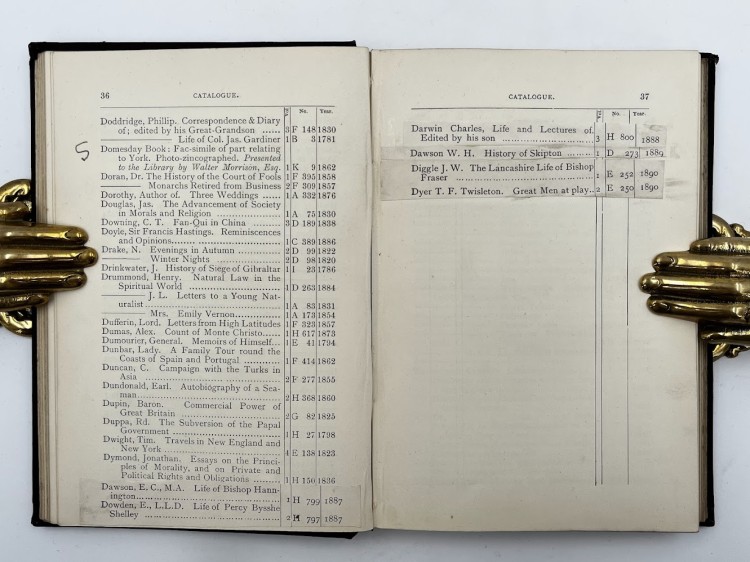 36 CATALOGUE.
Vol. No. Year.
Doddridge, Phillip. Correspondence & Diary
of; edited by his Great-Grandson ...... 3 F 148 1830
——— Life of Col. Jas. Gardiner 1 B 5 1781
5
Domesday Book: Fac-simile of part relating
to York. Photo-zincographed. Presented
to the Library by Walter Morrison, Esq. 1 K 9 1862
Doran, Dr. The History of the Court of Fools 1 F 395 1858
——— Monarchs Retired from Business 2 F 309 1857
Dorothy, Author of. Three Weddings ...... 1 A 332 1876
Douglas, Jas. The Advancement of Society
in Morals and Religion ............ 1 A 75 1830
Downing, C. T. Fan-Qui in China ......... 3 D 189 1838
Doyle, Sir Francis Hastings. Reminiscences
and Opinions............ 1 C 389 1886
Drake, N. Evenings in Autumn ............ 2 D 99 1822
——— Winter Nights ............ 2 D 98 1820
Drinkwater, J. History of Siege of Gibraltar 1 I 23 1786
Drummond, Henry. Natural Law in the
Spiritual World ............ 1 D 263 1884
——— J. L. Letters to a Young Nat-
uralist ............ 1 A 83 1831
——— Mrs. Emily Vernon............ 1 A 173 1854
Dufferin, Lord. Letters from High Latitudes 1 F 323 1857
Dumas, Alex. Count of Monte Christo...... 1 H 617 1873
Dumourier, General. Memoirs of Himself... 1 E 41 1794
Dunbar, Lady. A Family Tour round the
Coasts of Spain and Portugal ............ 1 F 414 1862
Duncan, C. Campaign with the Turks in
Asia ............ 2 F 277 1855
Dundonald, Earl. Autobiography of a Sea-
man............ 2 H 368 1860
Dupin, Baron. Commercial Power of
Great Britain ............ 2 G 82 1825
Duppa, Rd. The Subversion of the Papal
Government ............ 1 H 27 1798
Dwight, Tim. Travels in New England and
New York ............ 4 E 138 1823
Dymond, Jonathan. Essays on the Princi-
ples of Morality, and on Private and
Political Rights and Obligations ......... 1 H 150 1836
Dawson, E. C., M.A. Life of Bishop Hann-
ington............ 1 H 799 1887
Dowden, E., L.L.D. Life of Percy Bysshe
Shelley ............ 2 H 797 1887
CATALOGUE. 37
Vol. No. Year.
Darwin Charles, Life and Lectures of.
Edited by his son ............ 3 H 800 1888
Dawson W. H. History of Skipton ......... 1 D 273 1889
Diggle J. W. The Lancashire Life of Bishop
Fraser ............ 1 E 252 1890
Dyer T. F. Twisleton. Great Men at play.. 2 E 250 1890